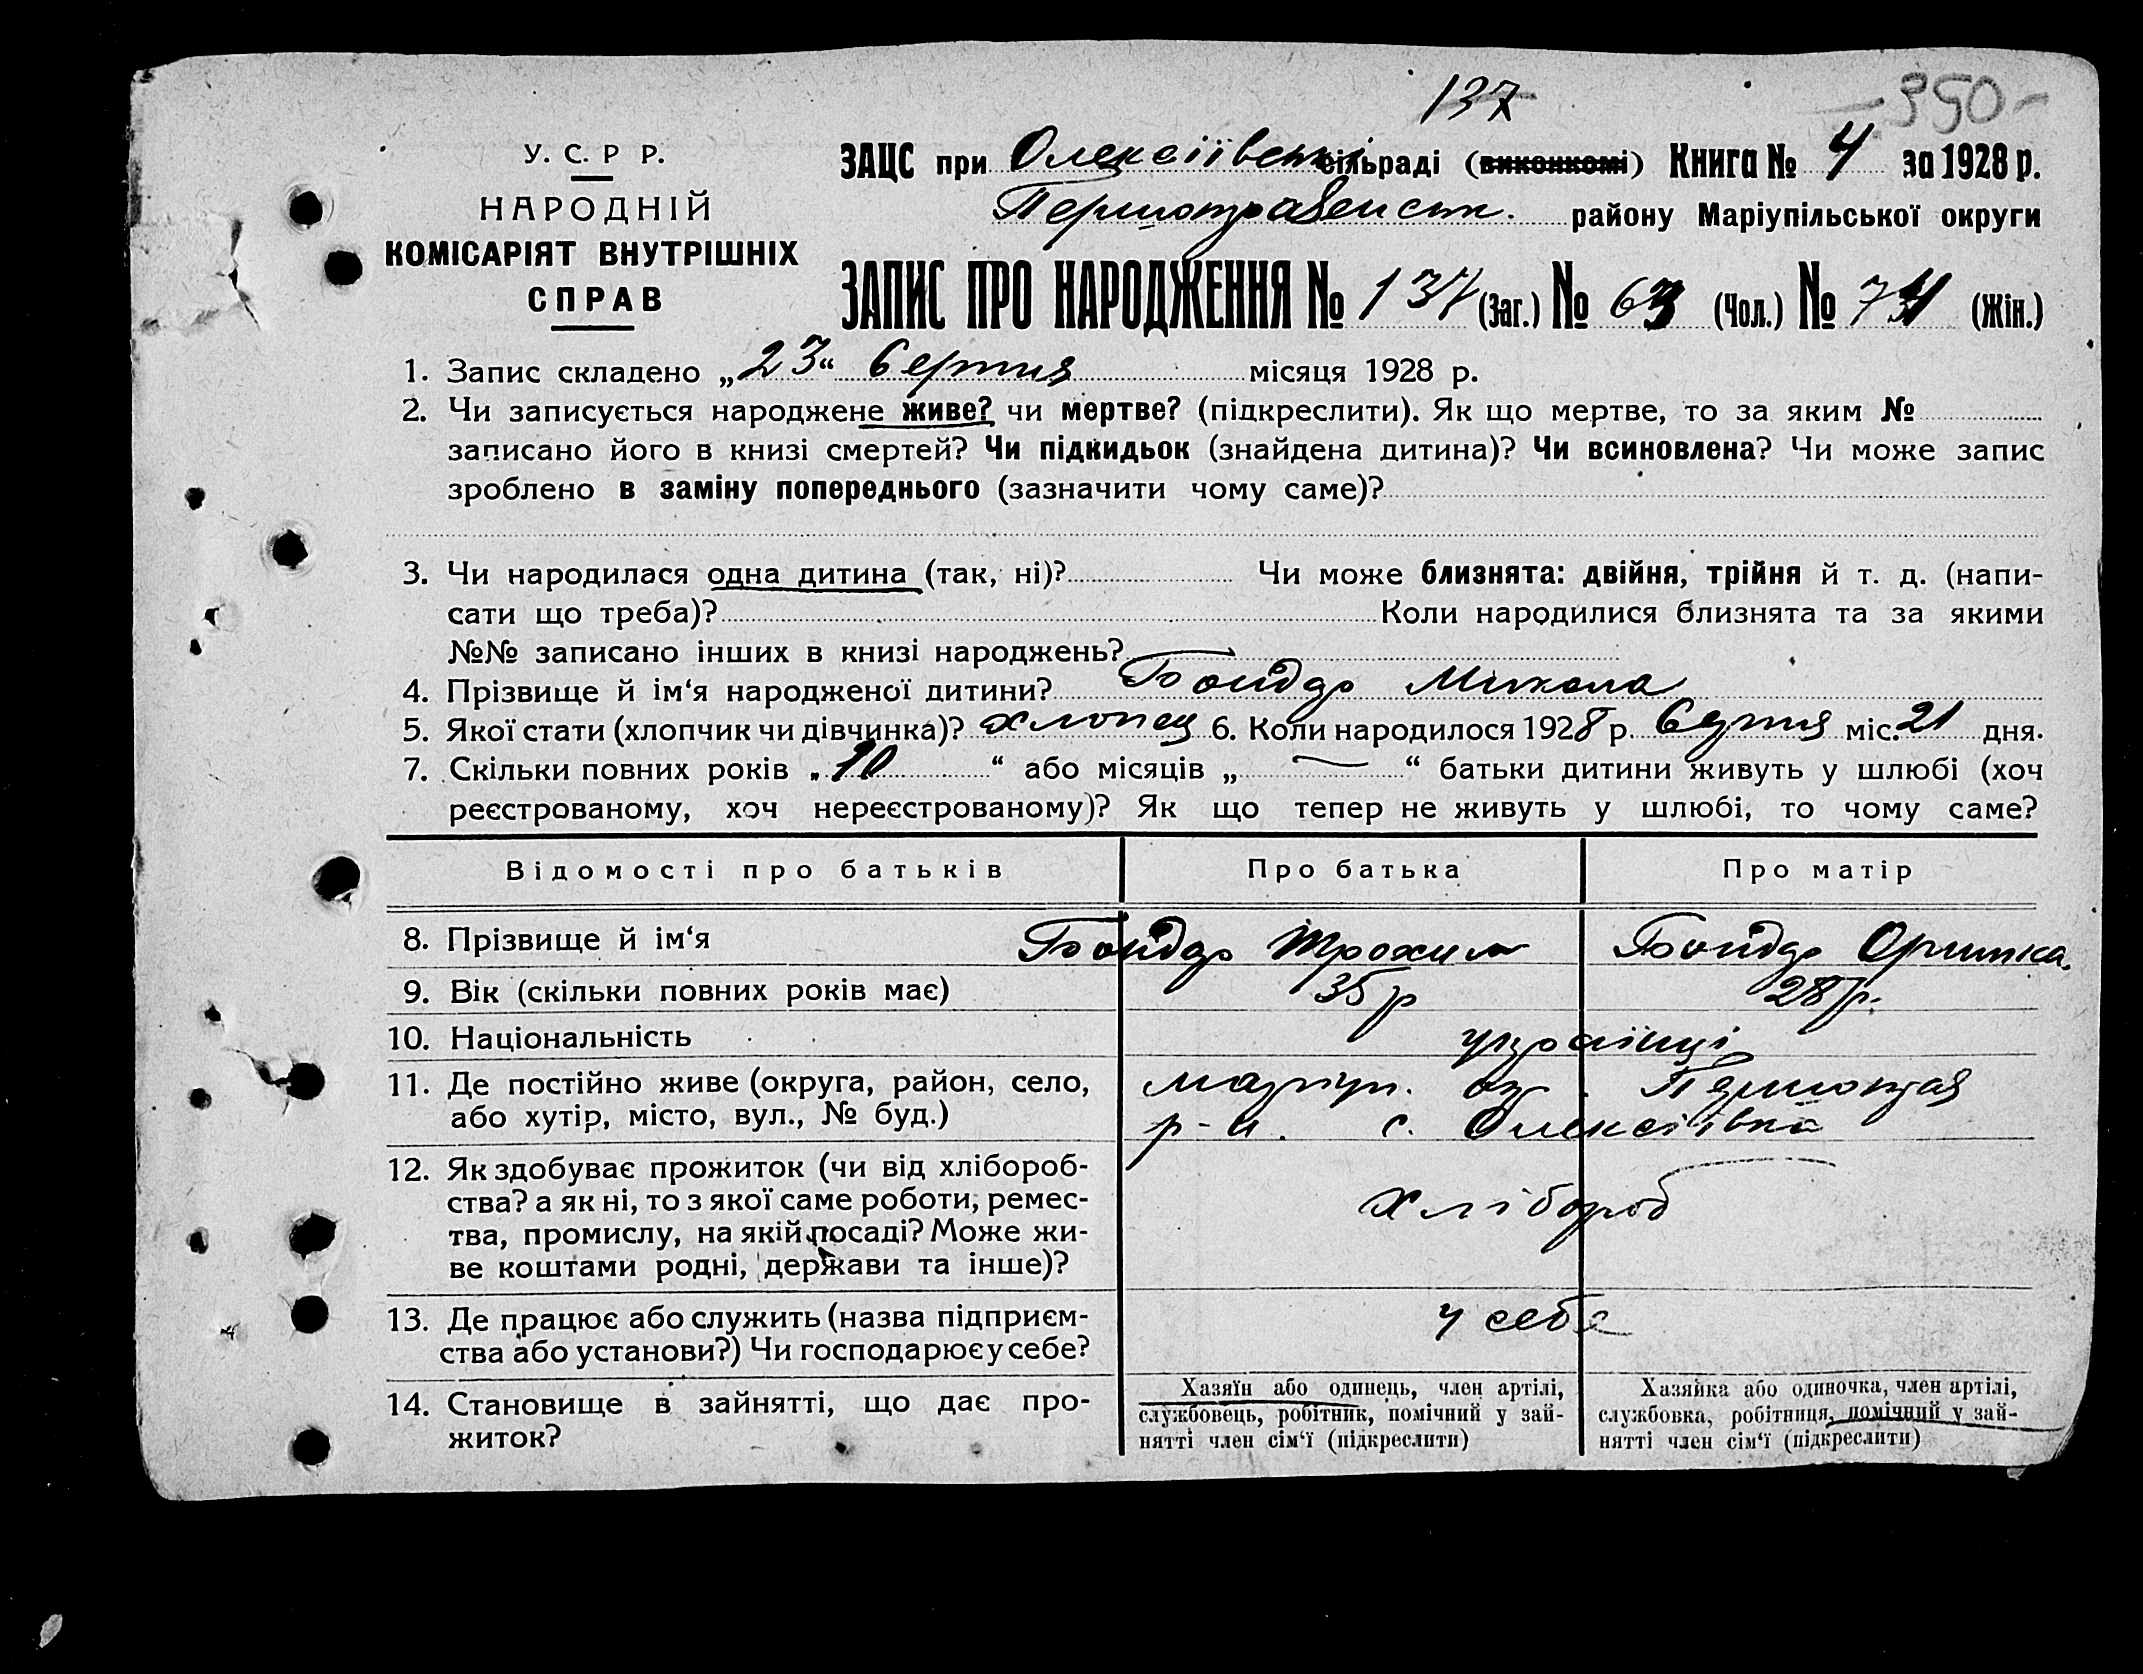 137
350
У. С. Р Р.
НАРОДНІЙ
КОМІСАРІЯТ ВНУТРІШНІХ
СПРАВ
ЗАЦС при Олексіївськ сільраді (виконкомі) Книга № 4 за 1928 р.
Першотравенськ. району Маріупільської округи
ЗАПИС ПРО НАРОДЖЕННЯ № 137 (Заг.) № 63 (Чол.) № 74 (Жін.)
1. Запис складено „23“ Серпня місяця 1928 р.
2. Чи записується народжене живе? чи мертве? (підкреслити). Як що мертве, то за яким №
записано його в книзі смертей? Чи підкидьок (знайдена дитина)? Чи всиновлена? Чи може запис
зроблено в заміну попереднього (зазначити чому саме)?
3. Чи народилася одна дитина (так, ні)? Чи може близнята: двійня, трійня й т. д. (напи-
сати що треба)? Коли народилися близнята та за якими
№№ записано інших в книзі народжень?
4. Прізвище й ім‘я народженої дитини? Бойдо Микола
5. Якої стати (хлопчик чи дівчинка)? хлопец 6. Коли народилося 1928 р. Серпня міс. 21 дня.
7. Скільки повних років „10“ або місяців „—“ батьки дитини живуть у шлюбі (хоч
реєстрованому, хоч нереєстрованому)? Як що тепер не живуть у шлюбі, то чому саме?
Відомості про батьків Про батька Про матір
8. Прізвище й ім‘я Бойдо Трохим Бойдо Оришка.
9. Вік (скільки повних років має) 35 р 28 р.
10. Національність українці
11. Де постійно живе (округа, район, село, Маріуп. ок. Першотрав
або хутір, місто, вул., № буд.) р-н. с. Олексіївка
12. Як здобуває прожиток (чи від хлібороб-
ства? а як ні, то з якої саме роботи, ремес- хлібороб
тва, промислу, на якій посаді? Може жи-
ве коштами родні, держави та інше)?
13. Де працює або служить (назва підприєм- у себе
ства або установи?) Чи господарює у себе?
14. Становище в зайнятті, що дає про-
житок?
Хазяїн або одинець, член артілі,
службовець, робітник, помічний у зай-
нятті член сім‘ї (підкреслити)
Хазяйка або одиночка, член артілі,
службовка, робітниця, помічний у зай-
нятті член сім‘ї (підкреслити)